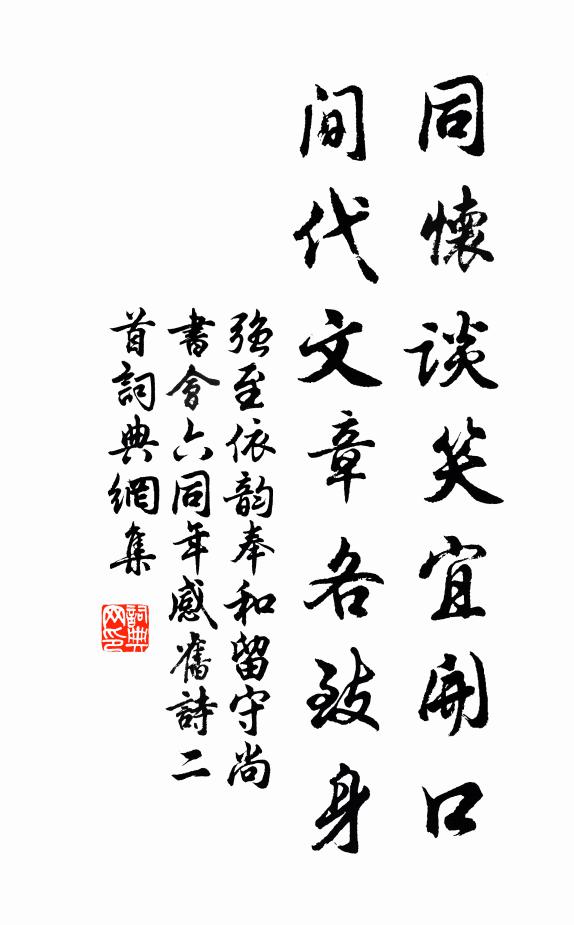 同懷談笑宜開口
間代文章各致身
強至依韵奉和留守尚
書會六同年感舊詩二
首詞典網集
詞典
网印